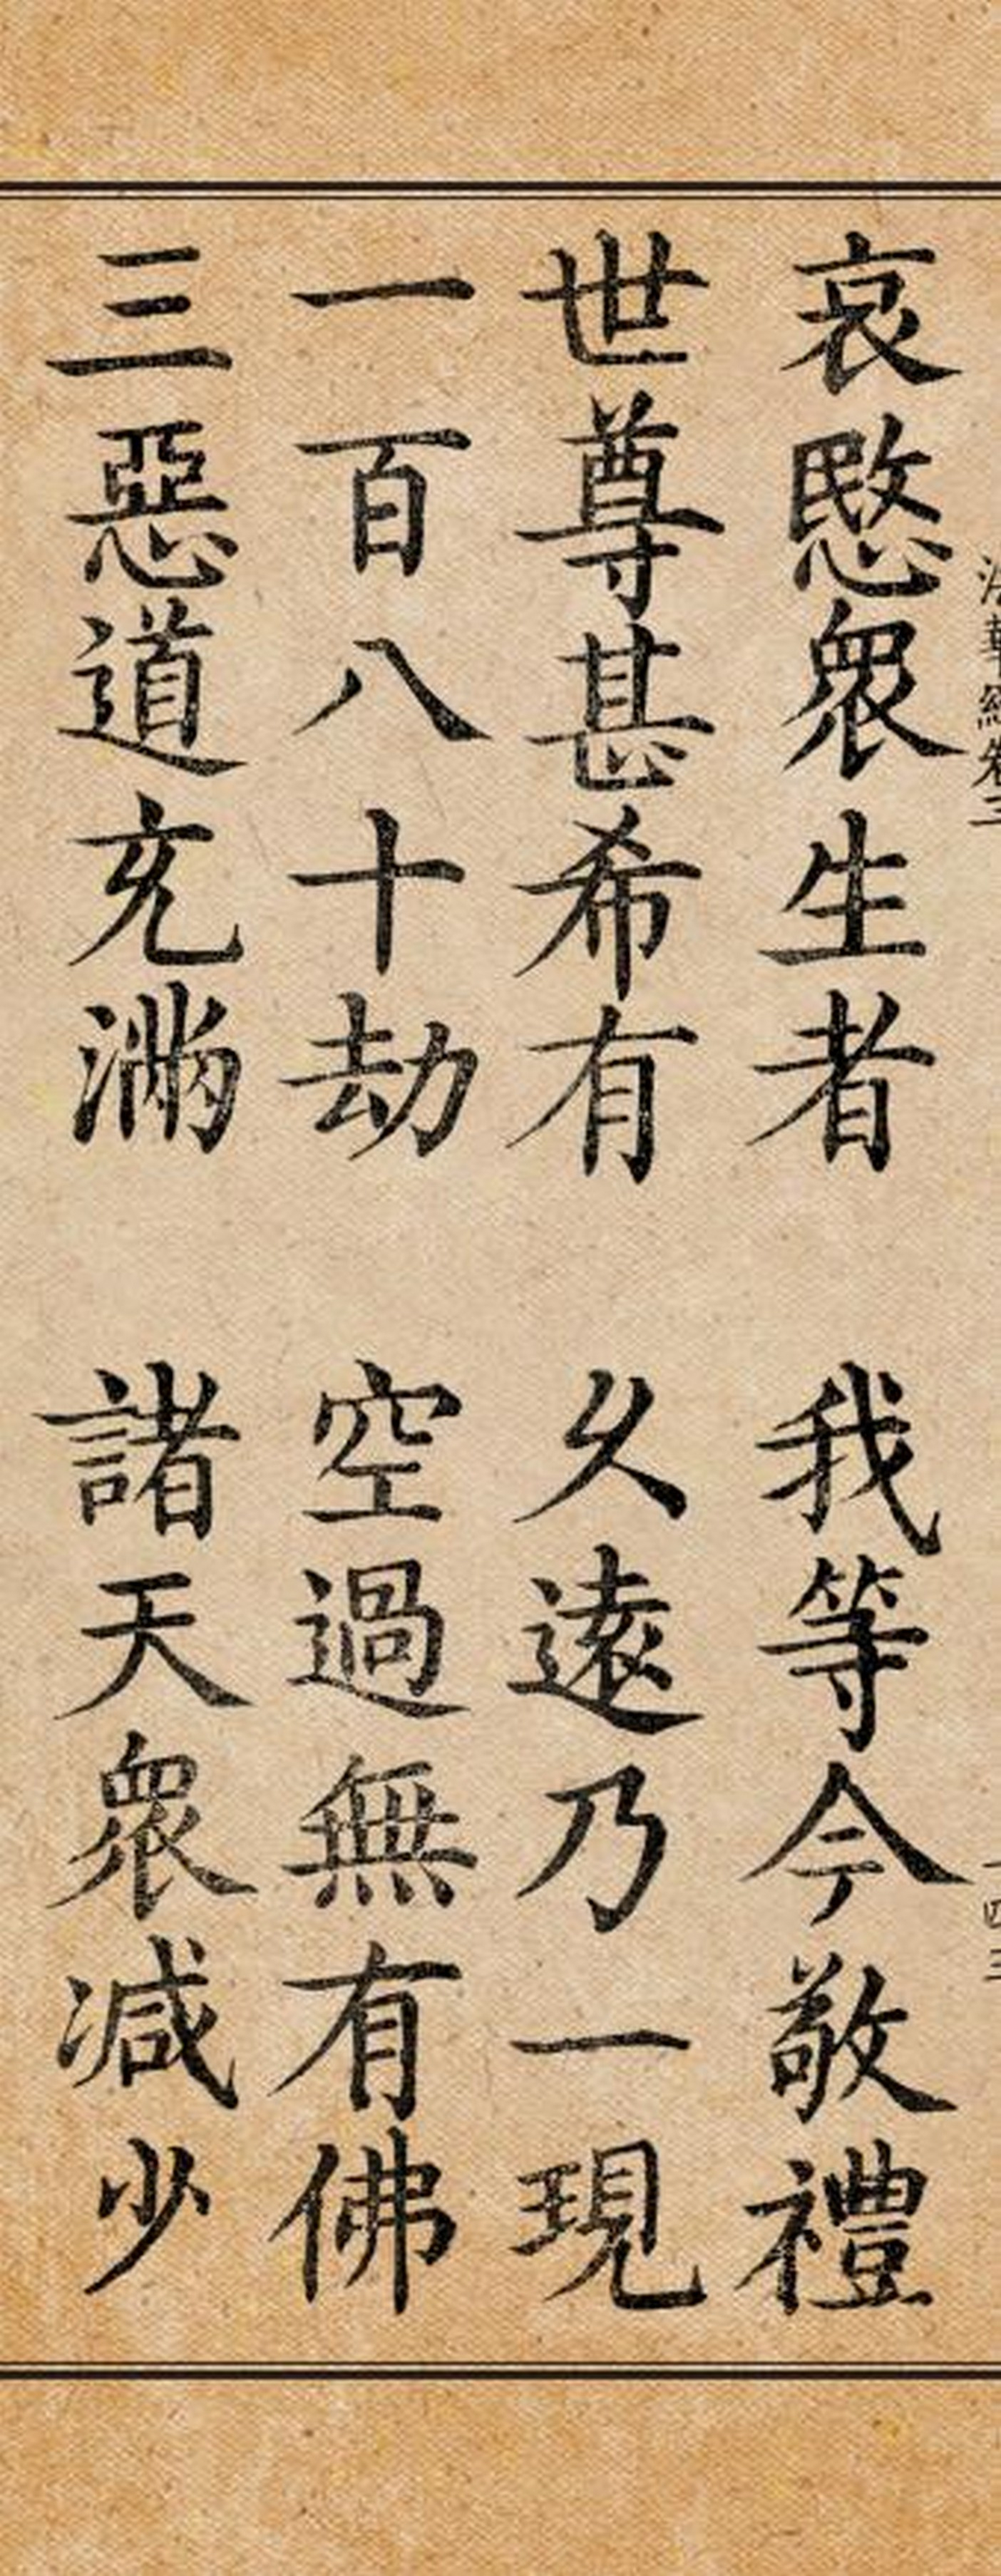 法華經卷三 一四三
哀愍衆生者 我等今敬禮
世尊甚希有 久遠乃一現
一百八十劫 空過無有佛
三惡道充滿 諸天衆減少